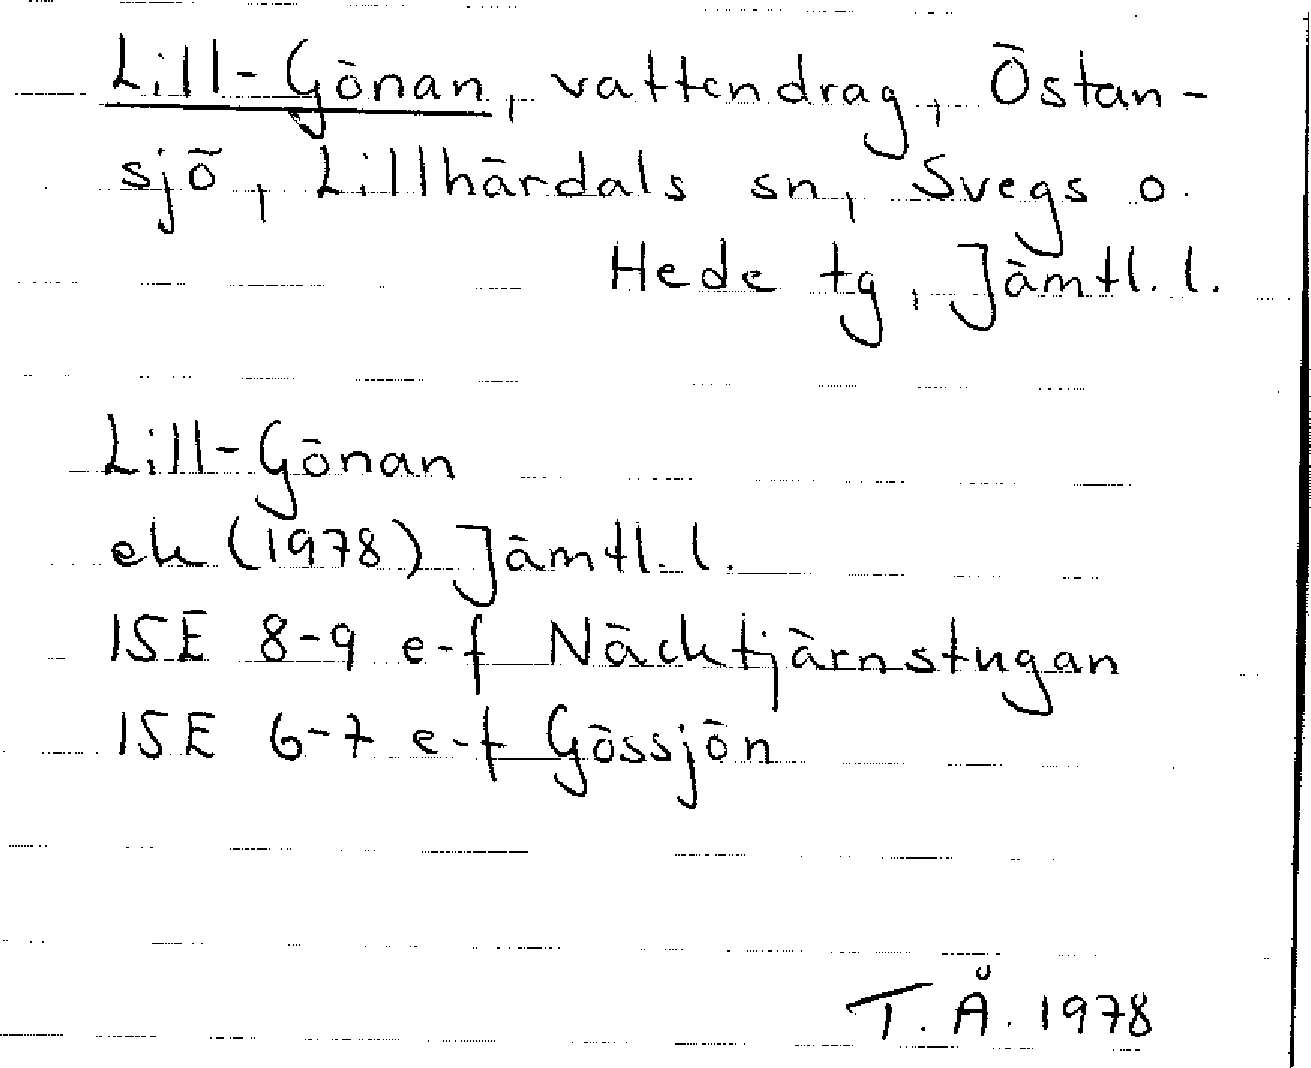 Lill-Gönan, vattendrag, Östan-
sjö, Lillhärdals sn, Svegs o.
Hede tg, Jämtl. l.
Lill-Gönan
ek (1978) Jämtl. l.
15E 8-9 e-f Näcktjärnstugan
15E 6-7 e-f Gössjön
T. Å. 1978